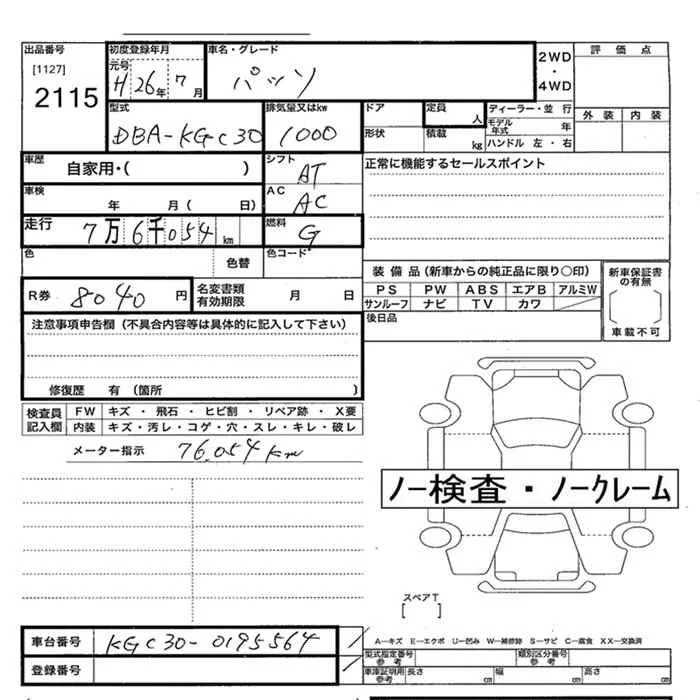 出品番号 初度登録年月 車名・グレード 2WD ・ 4WD 評価点
[1127] 元号 H26年7月 パッソ
2115
型式 排気量又はkw ドア 定員 人 ディーラー・並行 外装 内装
DBA-KGC30 1000 形状 積載 kg モデル年式 年
ハンドル 左・右
車歴 自家用・( ) シフト AT 正常に機能するセールスポイント
車検 年 月( 日) AC AC
走行 7万6千054km 燃料 G
色 色替 色コード
装備品(新車からの純正品に限り○印) 新車保証書の有無
R券 8040円 名変書類有効期限 月 日 PS PW ABS エアB アルミW
サンルーフ ナビ TV カワ
注意事項申告欄(不具合内容等は具体的に記入して下さい) 後日品 車載不可
修復歴 有(箇所 )
検査員記入欄 FW キズ・飛石・ヒビ割・リペア跡・X要
内装 キズ・汚レ・コゲ・穴・スレ・キレ・破レ
メーター指示 76,054km
ノー検査・ノークレーム
スペアT
[ ]
車台番号 KGC30-0195564 A―キズ E―エクボ U―凹み W―補修跡 S―サビ C―腐食 XX―交換済
型式指定番号 参考 類別区分番号 参考
登録番号 車庫証明用参考 長さ cm 幅 cm 高さ cm